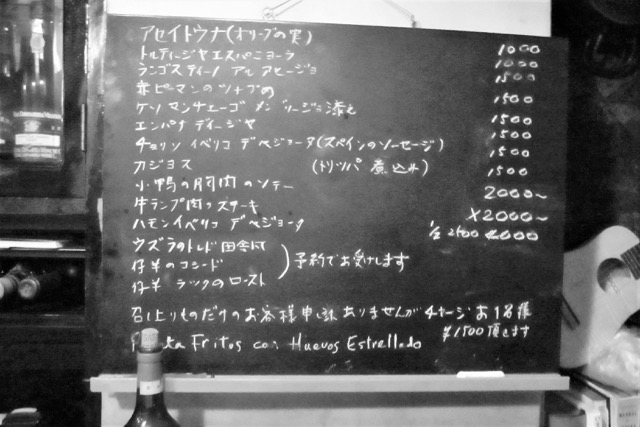 アセイトウナ(オリーブの実) 1000
トルティージャエスパニョーラ 1000
ランゴスティーノ アル アヒージョ 1500
赤ピーマンのツナ
ケソ マンチェーゴ メンブリージョ添え 1500
エンパナディージャ 1500
チョリソ イベリコ デ ベジョータ(スペインのソーセージ) 1500
カジョス (トリッパ 煮込み) 1500
小鴨の胸肉のソテー 1500
牛ランプ肉のステーキ 2000~
ハモンイベリコ デ ベジョータ ×2000~
ウズラのトレド田舎風 ½ 2500 4000
仔羊のコシード )予約でお受けします
仔羊 ラックのロースト
召上りものだけのお客様申し訳ありませんがチャージ お1名様
¥1500頂きます
Fritos con Huevos Estrellado